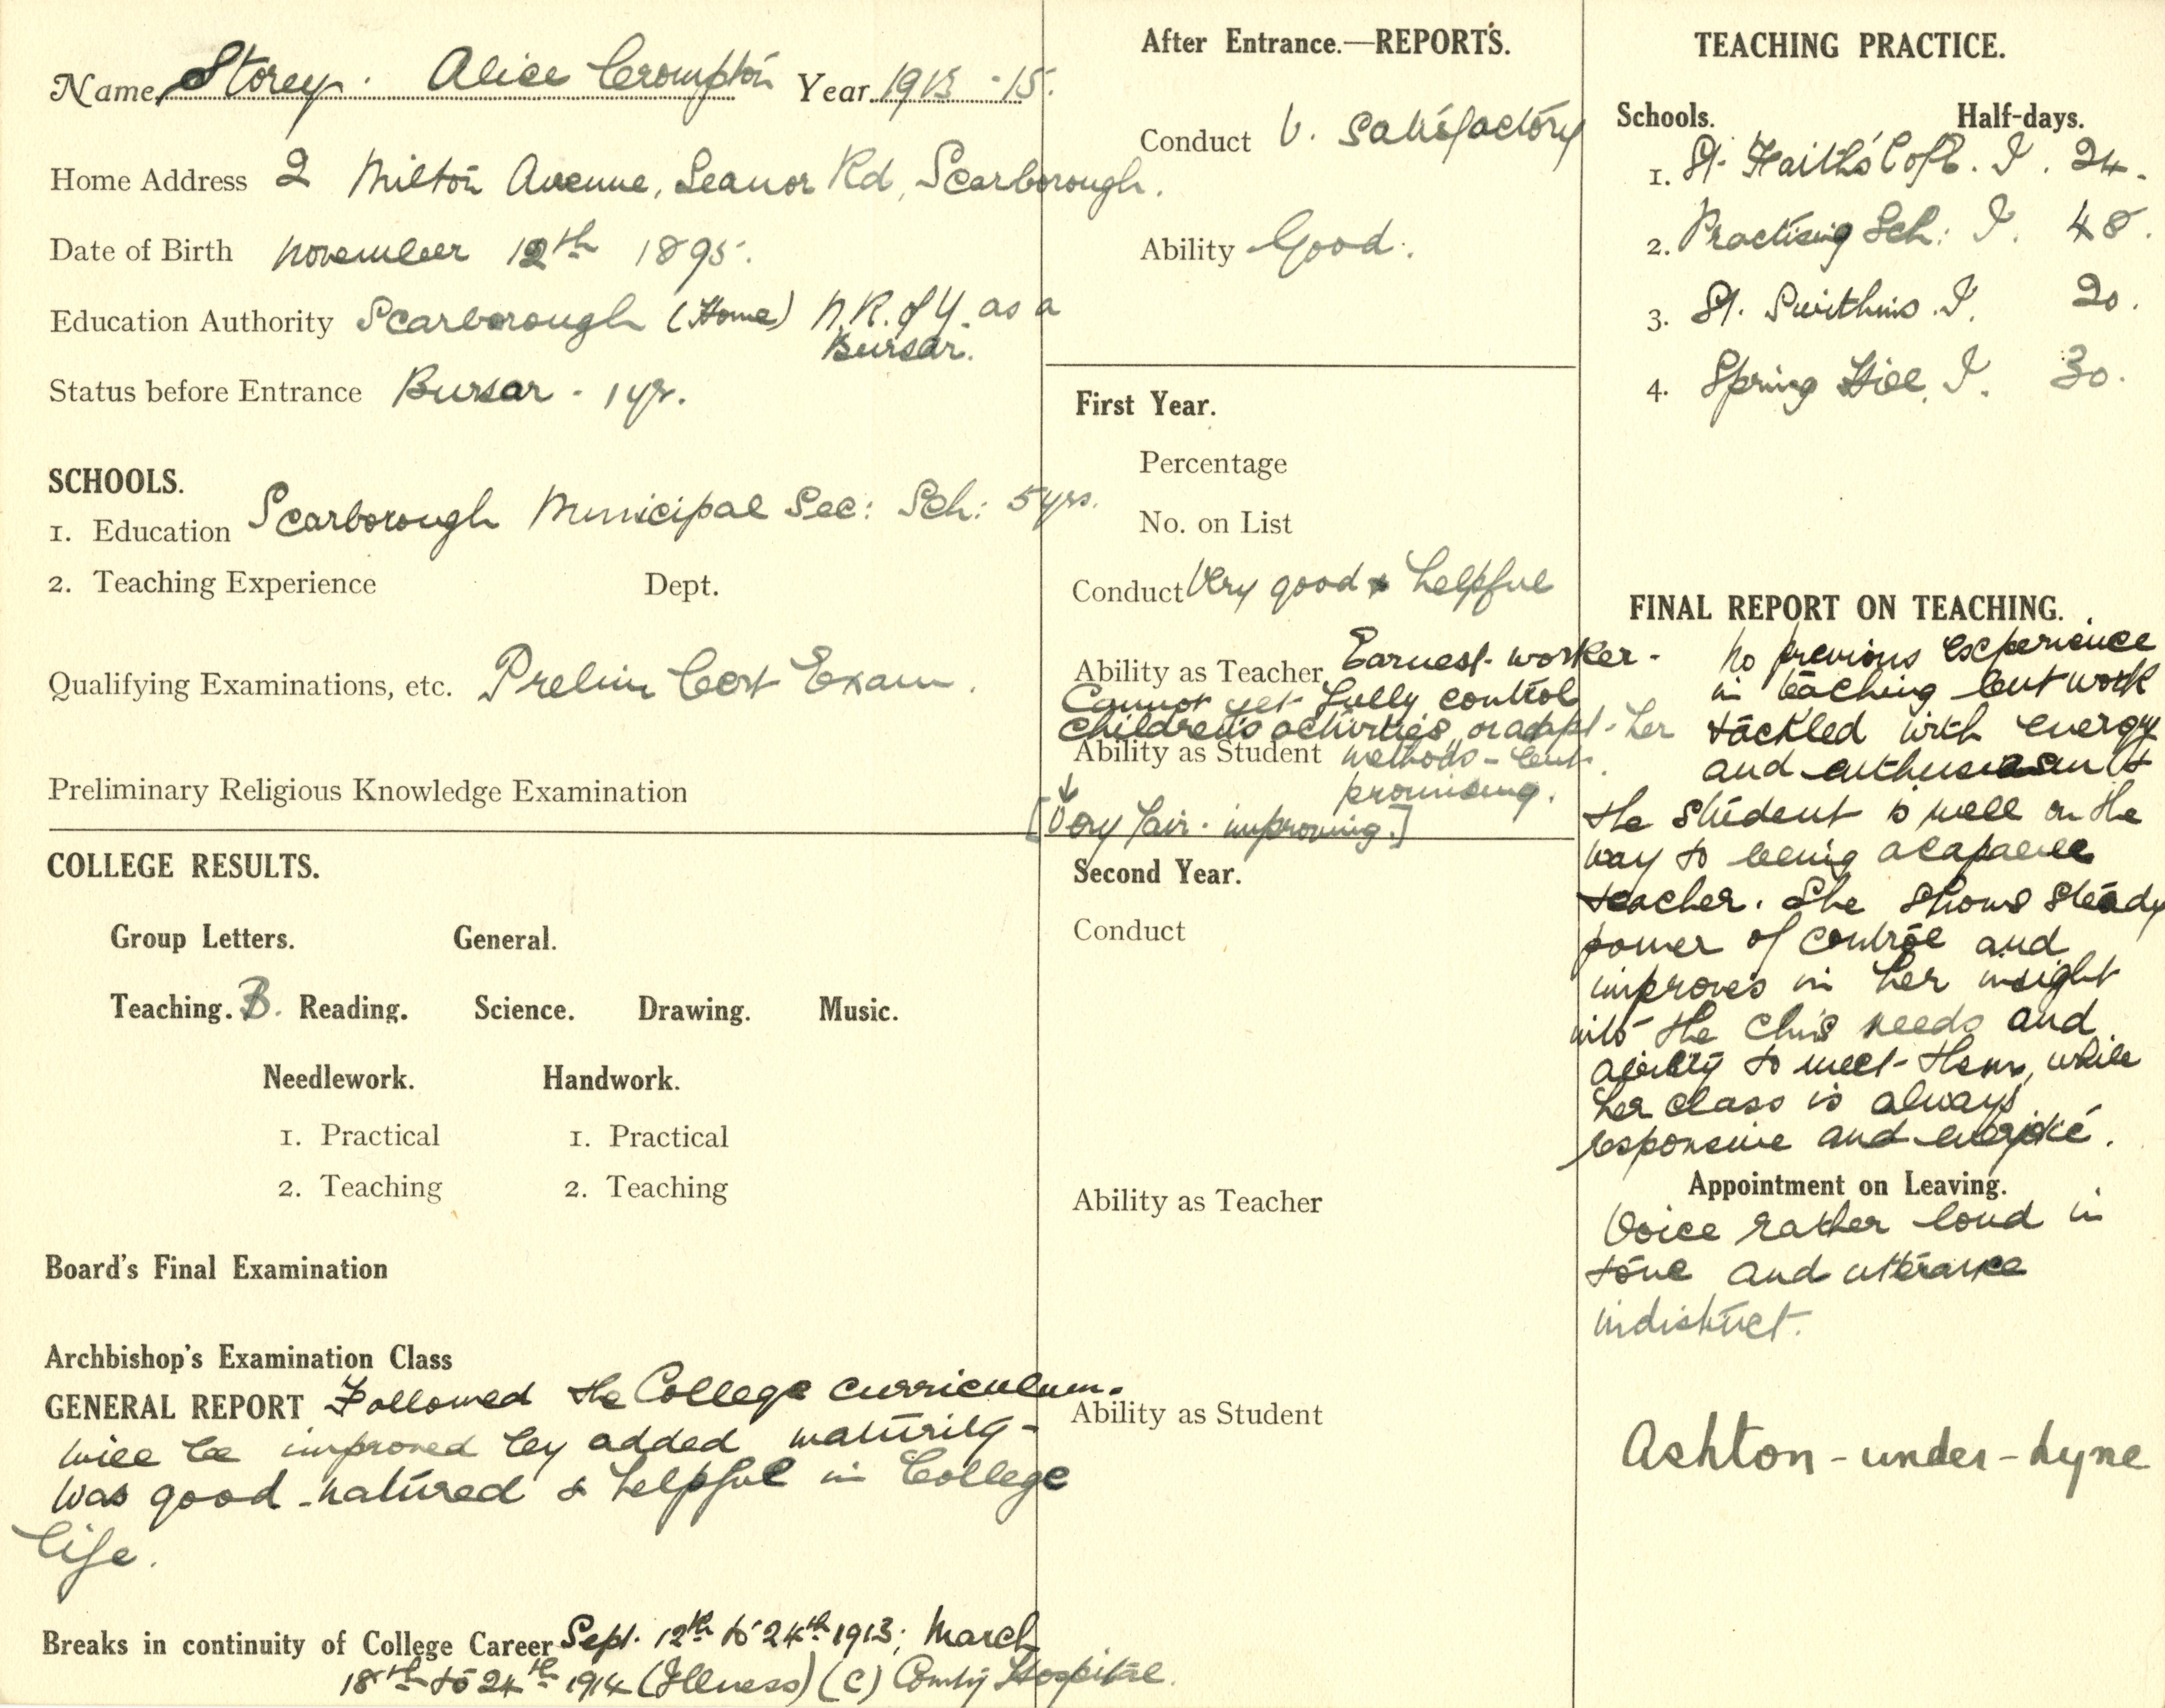 Name Storey. Alice Crompton Year 1913 - 15.
Home Address 2 Milton Avenue, Seanor Rd, Scarborough.
Date of Birth November 12th 1895.
Education Authority Scarborough (Home) N.R. of Y. as a
Bursar.
Status before Entrance Bursar - 1 yr.
SCHOOLS.
1. Education Scarborough Municipal Sec: Sch: 5 yrs.
2. Teaching Experience Dept.
Qualifying Examinations, etc. Prelim Cert Exam.
Preliminary Religious Knowledge Examination
COLLEGE RESULTS.
Group Letters. General.
Teaching. B. Reading. Science. Drawing. Music.
Needlework. Handwork.
1. Practical 1. Practical
2. Teaching 2. Teaching
Board's Final Examination
Archbishop's Examination Class
GENERAL REPORT Followed the College curriculum.
Will be improved by added maturity -
Was good-natured & helpful in College
life.
Breaks in continuity of College Career Sept. 12th to 24th 1913; March
18th to 24th 1914 (Illness) (C) County Hospital.
After Entrance.—REPORTS.
Conduct V. Satisfactory
Ability Good.
First Year.
Percentage
No. on List
Conduct Very good & helpful
Ability as Teacher Earnest worker -
Cannot yet fully control
children's activities, or adapt her
Ability as Student methods - but
promising.
[Very fair - improving.]
Second Year.
Conduct
Ability as Teacher
Ability as Student
TEACHING PRACTICE.
Schools. Half-days.
1. St. Faith's I. 24.
2. Practising Sch: I. 48.
3. St. Swithins. I. 20.
4. Spring Hill. I. 30.
FINAL REPORT ON TEACHING.
No previous experience
in teaching but work
tackled with energy
and enthusiasm &
the student is well on the
way to being a capable
teacher. She shows steady
power of control and
improves in her insight
into the needs and
ability to meet them, while
her class is always
responsive and
Appointment on Leaving.
Voice rather loud in
tone and utterance
indistinct.
Ashton-under-Lyne